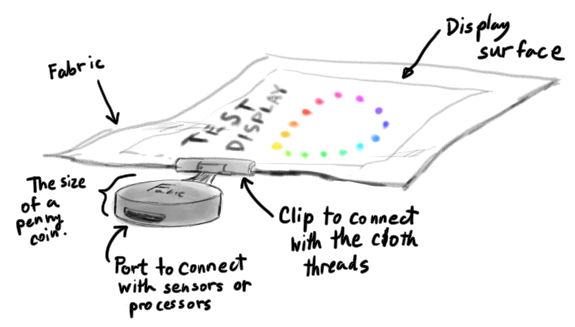 Display
surface
Fabric
TEST
DISPLAY
The size
of a
penny
coin.
Fabric
Clip to connect
with the cloth
threads
Port to connect
with sensors or
processors